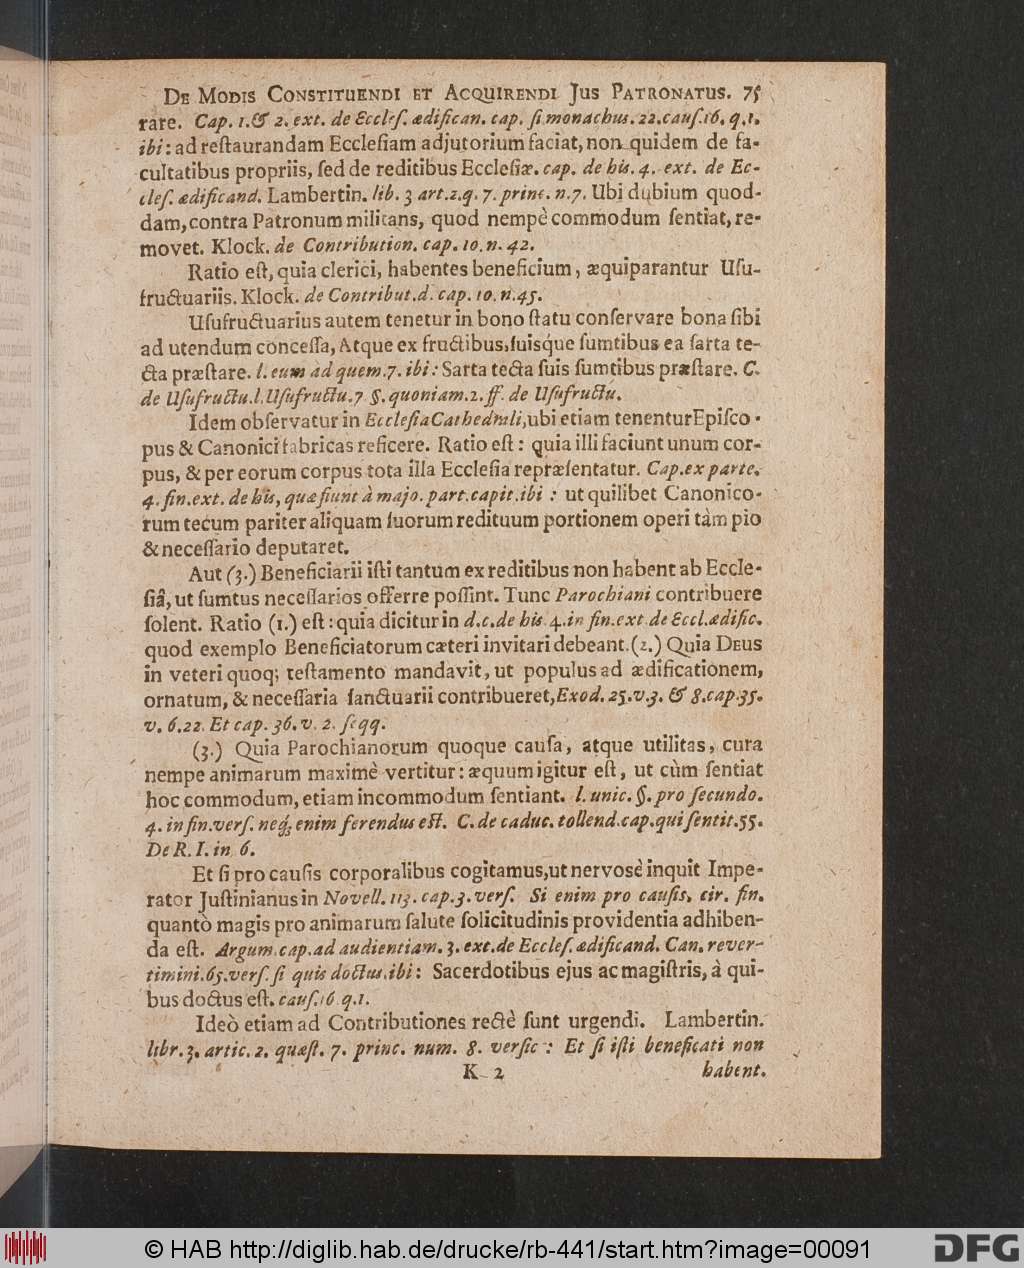 De Modis Constituendi et Acquirendi Jus Patronatus. 75
rare. Cap. 1.& 2. ext. de Eccleſ. ædifican. cap. ſi monachus. 22. cauſ.16. q.1.
ibi: ad reſtaurandam Eccleſiam adjutorium faciat, non quidem de fa-
cultatibus propriis, ſed de reditibus Eccleſiæ. cap. de his. 4. ext. de Ec-
cleſ. ædificand. Lambertin. lib. 3 art.2.q. 7. princ. n.7. Ubi dubium quod-
dam, contra Patronum militans, quod nempè commodum ſentiat, re-
movet. Klock. de Contribution. cap. 10. n. 42.
Ratio eſt, quia clerici, habentes beneficium, æquiparantur Uſu-
fructuariis. Klock. de Contribut.d. cap. 10. n.45.
Uſufructuarius autem tenetur in bono ſtatu conſervare bona ſibi
ad utendum conceſſa, Atque ex fructibus, ſuisq́ue ſumtibus ea ſarta te-
cta præſtare. l. eum ad quem.7. ibi: Sarta tecta ſuis ſumtibus præſtare. C.
de Uſufructu. l. Uſufructu.7 §. quoniam.2. ff. de Uſufructu.
Idem obſervatur in Eccleſia Cathedrali, ubi etiam tenentur Epiſco-
pus & Canonici fabricas reficere. Ratio eſt: quia illi faciunt unum cor-
pus, & per eorum corpus tota illa Eccleſia repræſentatur. Cap. ex parte.
4. fin. ext. de his, quæ fiunt à majo. part. capit. ibi: ut quilibet Canonico-
rum tecum pariter aliquam ſuorum redituum portionem operi tàm pio
& neceſſario deputaret.
Aut (3.) Beneficiarii iſti tantum ex reditibus non habent ab Eccle-
ſiâ, ut ſumtus neceſſarios offerre poſſint. Tunc Parochiani contribuere
ſolent. Ratio (1.) eſt: quia dicitur in d.c. de his. 4. in fin. ext. de Eccl. ædific.
quod exemplo Beneficiatorum cæteri invitari debeant. (2.) Quia Deus
in veteri quoq; teſtamento mandavit, ut populus ad ædificationem,
ornatum, & neceſſaria ſanctuarii contribueret, Exod. 25. v.3. & 8. cap.35.
v. 6.22. Et cap. 36. v. 2. ſeqq.
(3.) Quia Parochianorum quoque cauſa, atque utilitas, cura
nempe animarum maximè vertitur: æquum igitur eſt, ut cùm ſentiat
hoc commodum, etiam incommodum ſentiant. l. unic. §. pro ſecundo.
4. in fin. verſ. neq; enim ferendus eſt. C. de caduc. tollend. cap. qui ſentit.55.
De R. I. in 6.
Et ſi pro cauſis corporalibus cogitamus, ut nervosè inquit Impe-
rator Juſtinianus in Novell. 113. cap.3. verſ. Si enim pro cauſis. cir. fin.
quantò magis pro animarum ſalute ſolicitudinis providentia adhiben-
da eſt. Argum. cap. ad audientiam. 3. ext. de Eccleſ. ædificand. Can. rever-
timini.65. verſ. ſi quis doctus. ibi: Sacerdotibus ejus ac magiſtris, à qui-
bus doctus eſt. cauſ.16 q.1.
Ideò etiam ad Contributiones rectè ſunt urgendi. Lambertin.
libr. 3. artic. 2. quæſt. 7. princ. num. 8. verſic: Et ſi iſti beneficati non
K 2 habent.
© HAB http://diglib.hab.de/drucke/rb-441/start.htm?image=00091
DFG